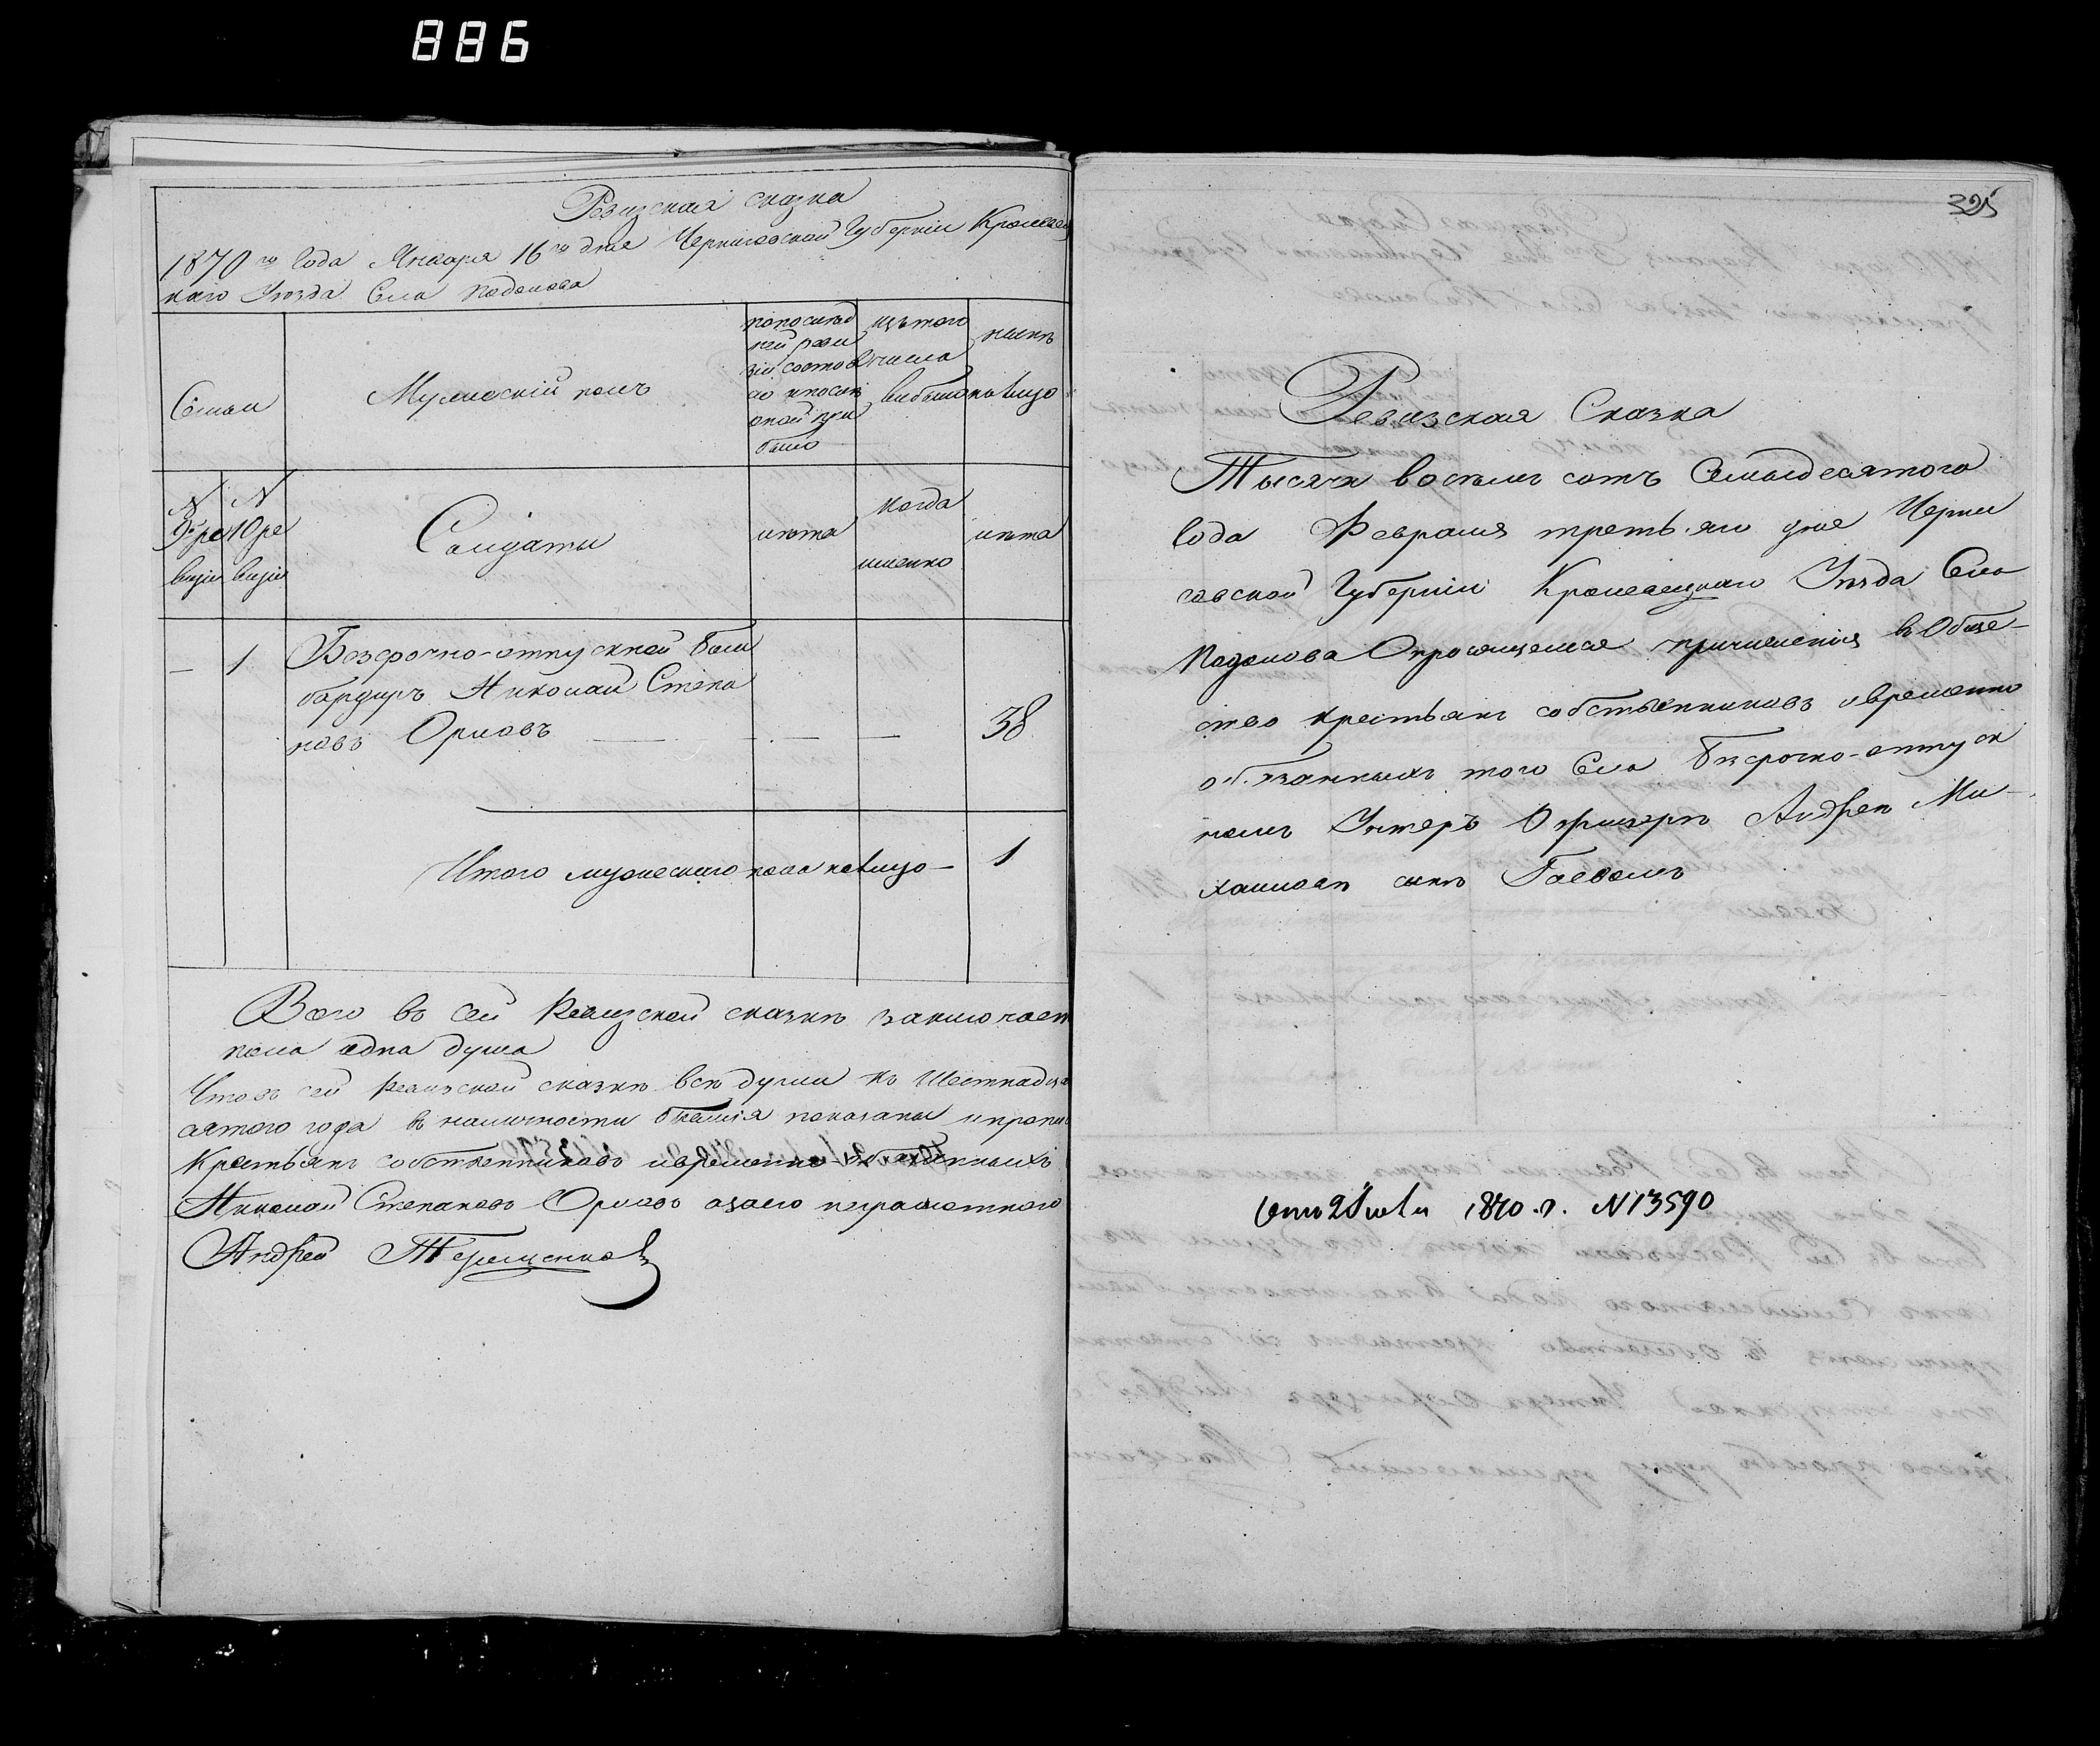 886
Ревизская сказка
1870го Года Января 16го дня Черниговской Губернии Кролевец
каго Уезда Села Подолова
Семьи
Мужескій полъ
попослѣд
ней реви
зіи состоя
ло и послѣ
оной при
было
изътого
числа
выбыло
нынѣ
налицо
N
9й ре
визіи
N
10 ре
визіи
Солдаты
лѣта
когда
именно
лѣта
— 1 Безсрочно-отпускной Бом
бардиръ Николай Степа
новъ Орловъ — — — 38
Итого мужескаго пола налицо — 1
Всего въ сей Ревизской сказкѣ заключает
пола одна душа
Что въ сей Ревизской сказкѣ всѣ души къ Шестнадца
сятого года в наличности бывшія показаны и пропи
Крестьянъ собственниковъ и временно-обязанныхъ
Николай Степановъ Орловъ а за его неграмотного
Андрей Терещенко
325
Ревизская Сказка
Тысяча восемь сотъ Семьдесятого
Года Февраля третьяго дня Черни
говской Губерніи Кролевецкаго Уезда Села
Подолова Опросящемся причисленія въ Обще-
ство крестьянъ собственниковъ и временно
обязанныхъ того Села Безсрочно-отпуск
номъ Унтеръ Офицерѣ Андреѣ Ми-
хайловѣ сынѣ
1870 г. N 13590